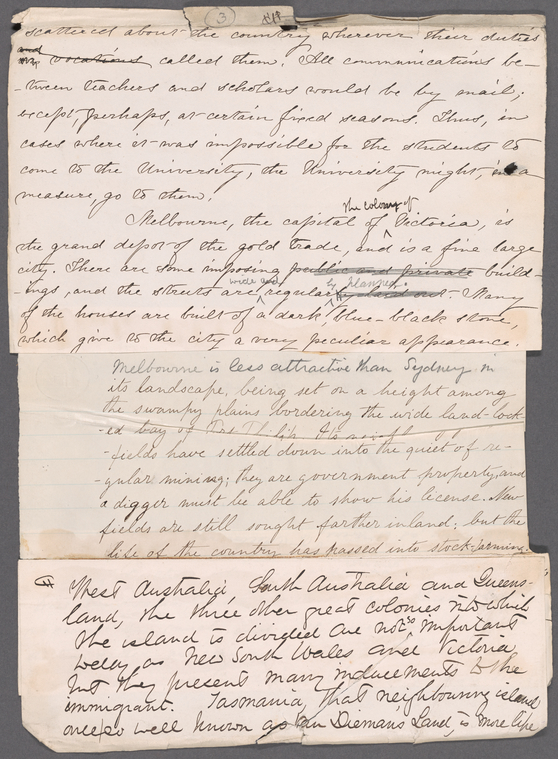 3
scattered about the country wherever their duties
and
vocations called them. All communications be-
tween teachers and scholars would be by mail;
except, perhaps, at certain fixed seasons. Thus, in
cases where it was impossible for the students to
come to the University, the University might, in a
measure, go to them.
the colony of
Melbourne, the capital of Victoria, is
the grand depot of the gold trade, and is a fine large
city. There are some imposing public and private build-
wide and ly planned.
ings, and the streets are regular laid out. Many
of the houses are built of a dark, blue-black stone,
which give to the city a very peculiar appearance.
Melbourne is less attractive than Sydney in
its landscape, being set on a height among
the swampy plains bordering the wide land-lock-
ed bay of Port Philip. Its
fields have settled down into the quiet of re-
gular mining; they are government property, and
a digger must be able to show his license. New
fields are still sought farther inland; but the
life of the country has passed into stock-farming.
West Australia, South Australia and Queens-
land, the three other great colonies into which
the island is divided are not so important
today as New South Wales and Victoria,
but they present many inducements to the
immigrant. Tasmania, that neighbouring island
once so well known as Van Dieman's Land, is more like